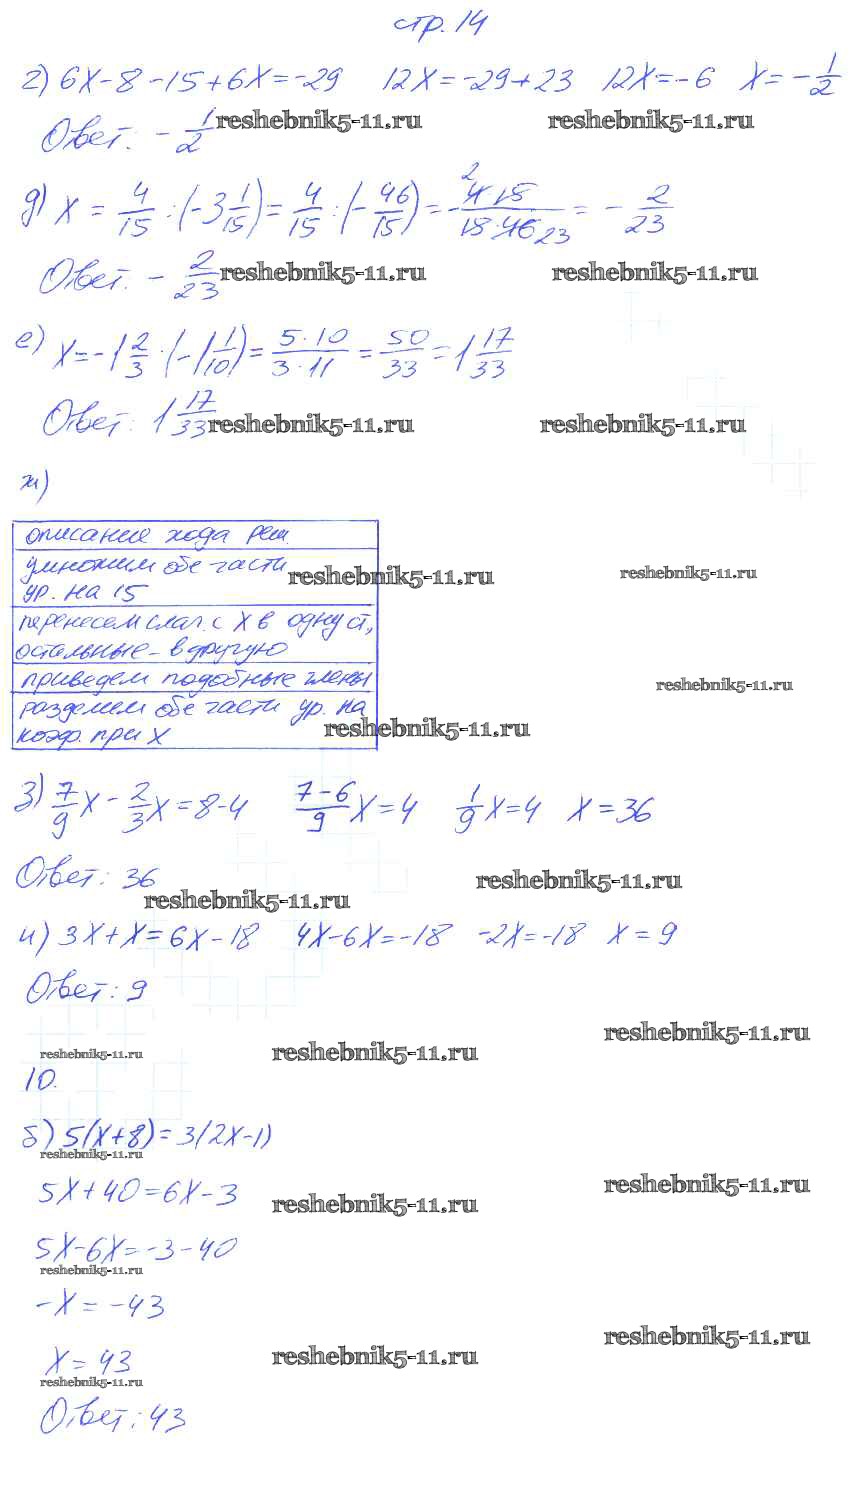 стр. 14
г) 6x - 8 - 15 + 6x = -29   12x = -29 + 23   12x = -6   x = -1/2
Ответ: -1/2
reshebnik5-11.ru   reshebnik5-11.ru
д) x = 4/15 : (-3 1/15) = 4/15 : (-46/15) = -(4·15)/(15·46) = -2/23
2 23
Ответ: -2/23
reshebnik5-11.ru   reshebnik5-11.ru
е) x = -1 2/3 : (-1 1/10) = (5·10)/(3·11) = 50/33 = 1 17/33
Ответ: 1 17/33
reshebnik5-11.ru   reshebnik5-11.ru
ж)
описание хода реш.
умножим обе части
ур. на 15
reshebnik5-11.ru   reshebnik5-11.ru
перенесем слаг. с x в одну ст,
остальные - в другую
приведем подобные члены
reshebnik5-11.ru
разделим обе части ур. на
коэф. при x
reshebnik5-11.ru
з) 7/9 x - 2/3 x = 8 - 4   (7-6)/9 x = 4   1/9 x = 4   x = 36
Ответ: 36
reshebnik5-11.ru   reshebnik5-11.ru
и) 3x + x = 6x - 18   4x - 6x = -18   -2x = -18   x = 9
Ответ: 9
reshebnik5-11.ru   reshebnik5-11.ru   reshebnik5-11.ru
10.
б) 5(x+8) = 3(2x-1)
reshebnik5-11.ru
5x + 40 = 6x - 3
reshebnik5-11.ru   reshebnik5-11.ru
5x - 6x = -3 - 40
reshebnik5-11.ru
-x = -43
reshebnik5-11.ru   reshebnik5-11.ru
x = 43
reshebnik5-11.ru
Ответ: 43